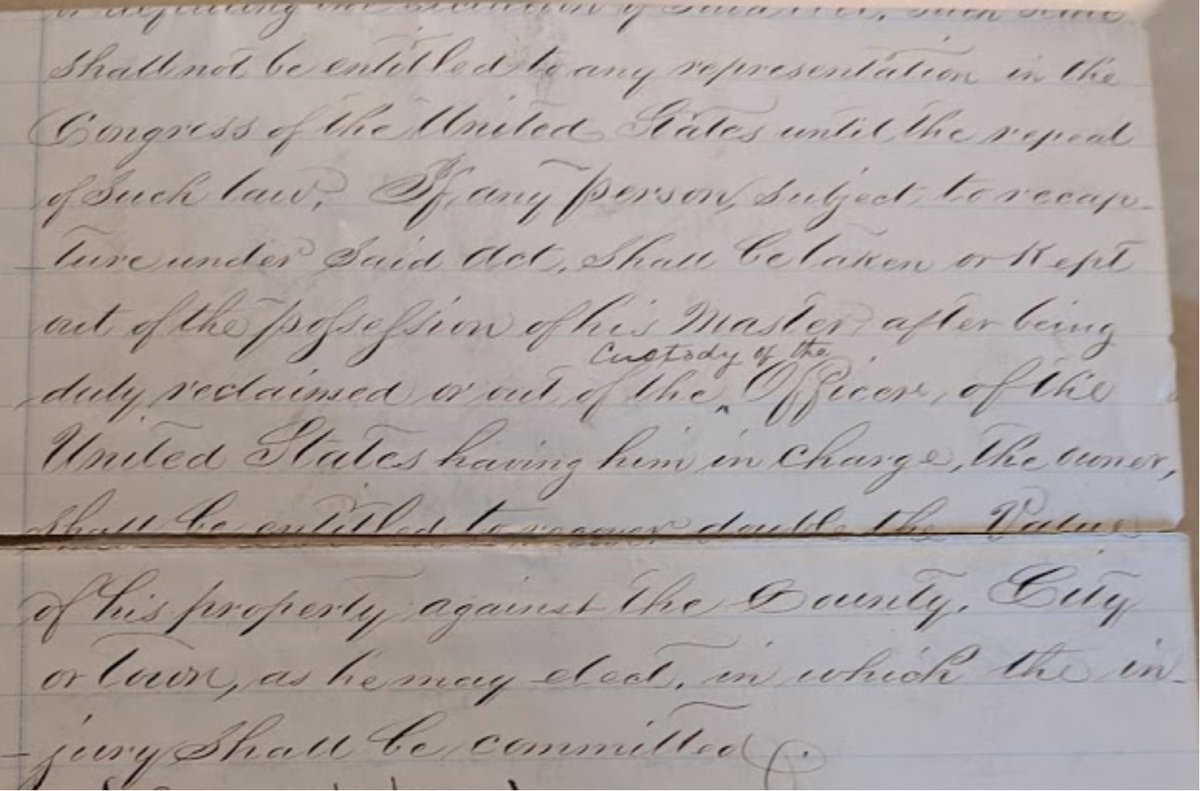 or defeating the execution of said Act, such State
shall not be entitled to any representation in the
Congress of the United States until the repeal
of such law. If any person, subject to recap-
-ture under said Act, shall be taken or kept
out of the possession of his Master, after being
custody of the
duly reclaimed or out of the ^ Officers, of the
United States having him in charge, the owner,
shall be entitled to recover double the Value
of his property against the County, City
or Town, as he may elect, in which the in-
-jury shall be committed.